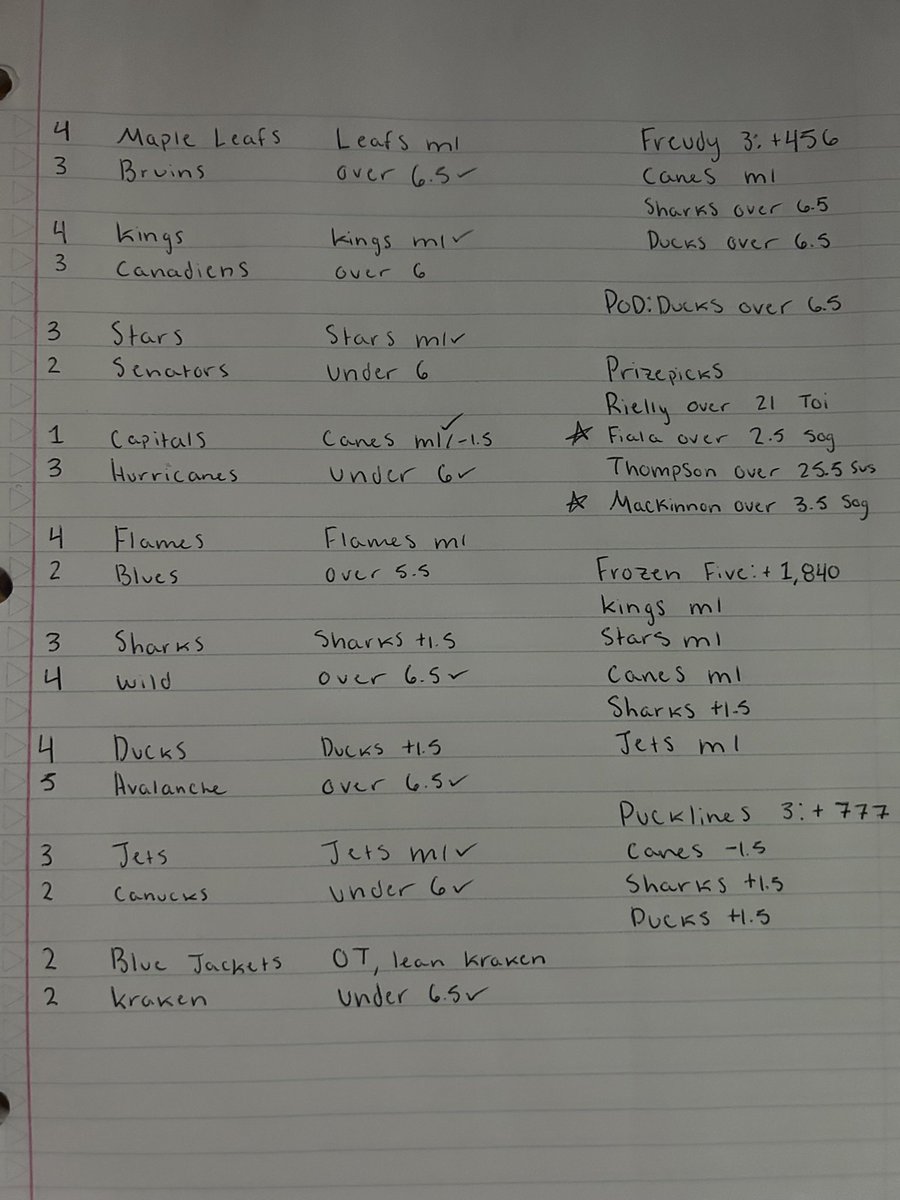 4 Maple Leafs Leafs ml
3 Bruins over 6.5✓
4 Kings Kings ml✓
3 Canadiens over 6
3 Stars Stars ml✓
2 Senators under 6
1 Capitals Canes ml✓/-1.5
3 Hurricanes under 6✓
4 Flames Flames ml
2 Blues over 5.5
3 Sharks Sharks +1.5
4 Wild over 6.5✓
4 Ducks Ducks +1.5
5 Avalanche over 6.5✓
3 Jets Jets ml✓
2 Canucks under 6✓
2 Blue Jackets OT, lean Kraken
2 Kraken under 6.5✓
Freudy 3: +456
Canes ml
Sharks over 6.5
Ducks over 6.5
POD: Ducks over 6.5
Prizepicks
Rielly over 21 Toi
☆ Fiala over 2.5 Sog
Thompson over 25.5 Svs
☆ Mackinnon over 3.5 Sog
Frozen Five: + 1,840
Kings ml
Stars ml
Canes ml
Sharks +1.5
Jets ml
Pucklines 3: + 777
Canes -1.5
Sharks +1.5
Ducks +1.5